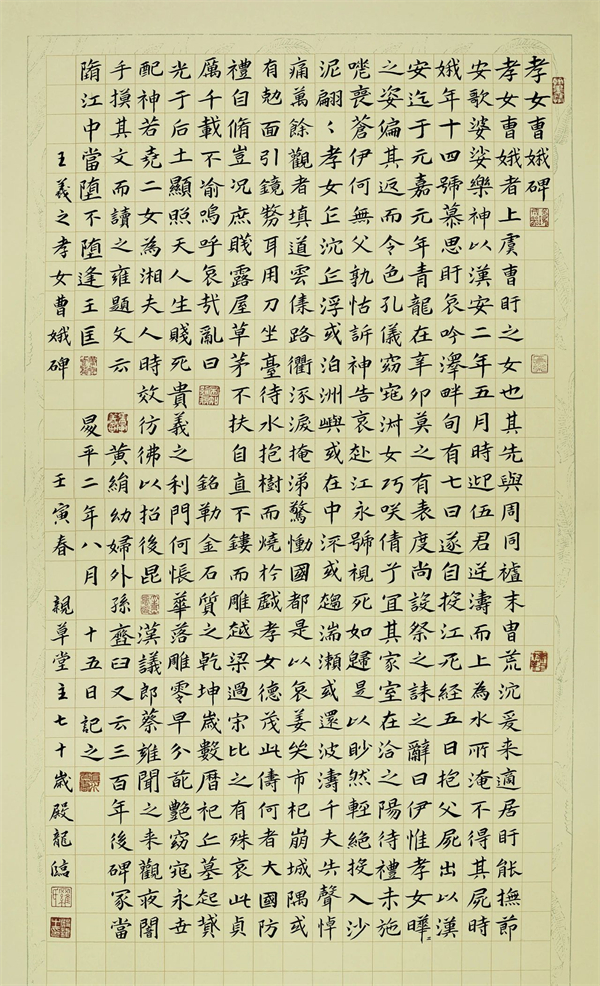 孝女曹娥碑
孝女曹娥者上虞曹盱之女也其先與周同末冑荒沉爰来適居盱能撫節
安歌婆娑樂神以漢安二年五月時迎伍君逆濤而上為水所淹不得其屍時
娥年十四號慕思盱哀吟澤畔旬有七日遂自投江死経五日抱父屍出以漢
安迄于元嘉元年青龍在辛卯莫之有表度尚設祭之誄之辭曰伊惟孝女曄〻
之姿偏其返而令色孔儀窈窕淑女巧咲倩兮宜其家室在洽之陽待禮未施
嗟喪蒼伊何無父孰怙訴神告哀赴江永號視死如歸是以眇然輕絶投入沙
泥翩〻孝女乍沉乍浮或泊洲嶼或在中流或趨湍瀨或還波濤千夫失聲悼
痛萬餘觀者填道雲集路衢流淚掩涕驚慟國都是以哀姜哭市杞崩城隅或
有勊面引鏡剺耳用刀坐臺待水抱樹而燒於戲孝女德茂此儔何者大國防
禮自脩豈況庶賤露屋草茅不扶自直不鏤而雕越梁過宋比之有殊哀此貞
厲千載不渝嗚呼哀哉亂曰 銘勒金石質之乾坤歲數曆祀丘墓起墳
光于后土顯照天人生賤死貴義之利門何悵華落雕零早分葩艷窈窕永世
配神若堯二女為湘夫人時效彷彿以招後昆 漢議郎蔡雍聞之来觀夜闇
手摸其文而讀之雍題文云 黃絹幼婦外孫齏臼又云三百年後碑冢當
隋江中當墮不墮逢王匡 昇平二年八月 十五日記之
王羲之孝女曹娥碑 壬寅春 親草堂主七十歲殿龍臨